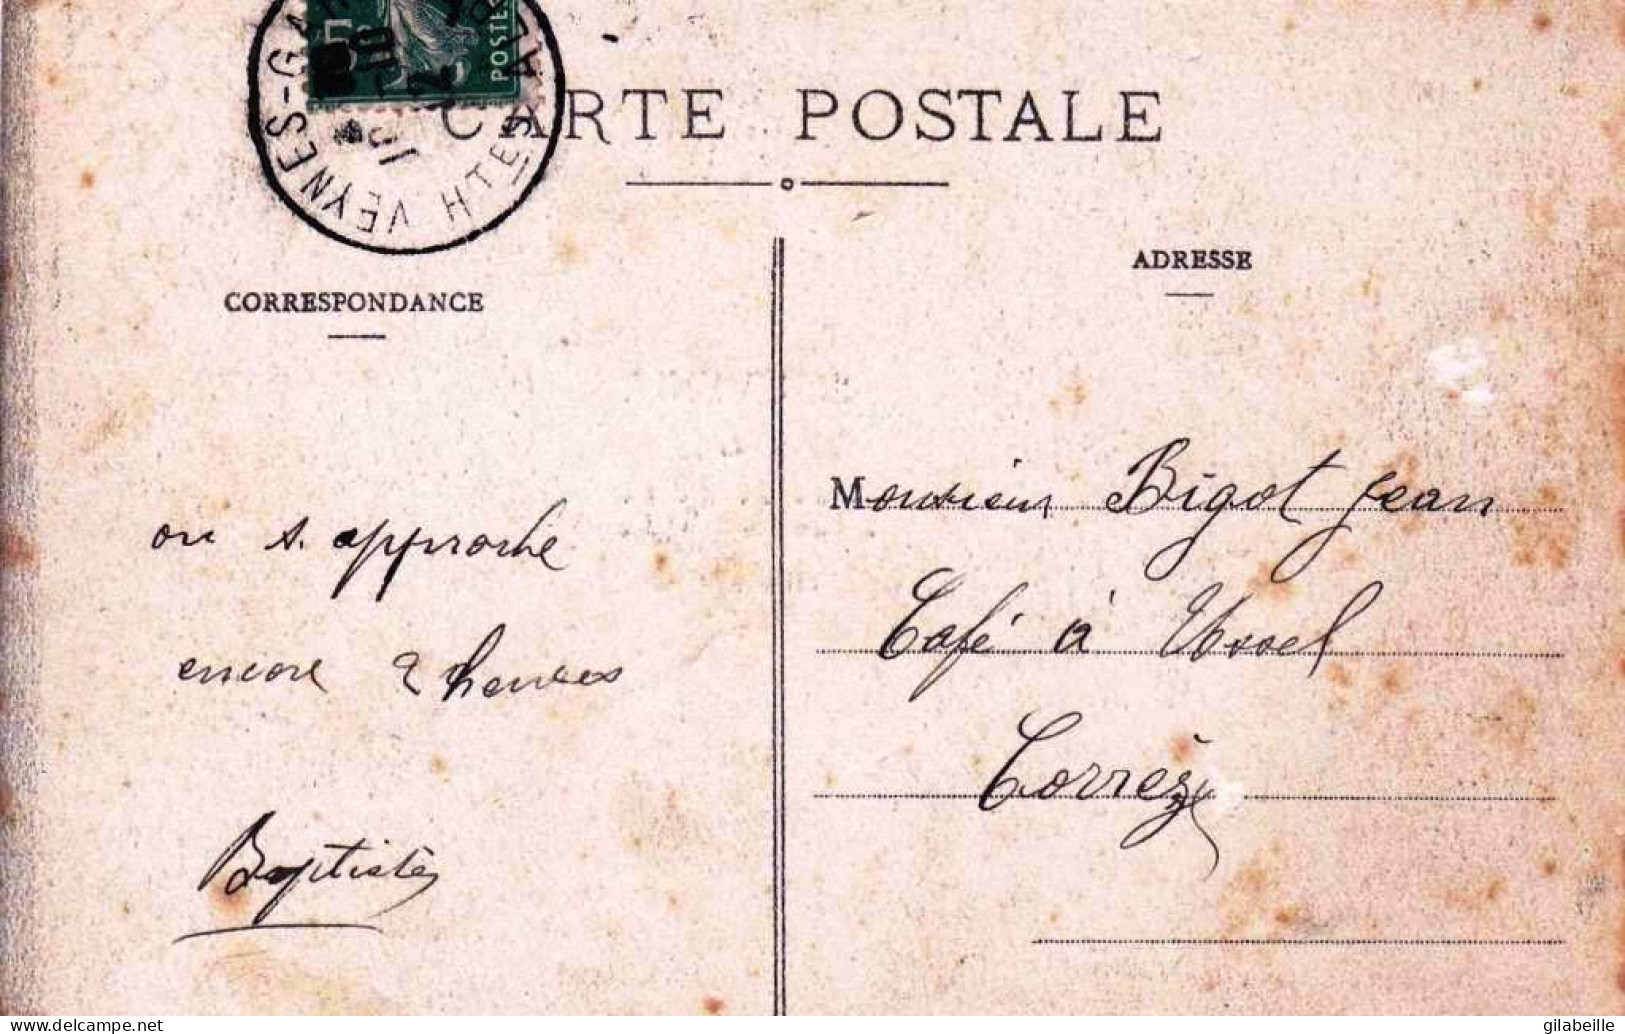 POSTES
VEYNES-GA
HTES ALP
CARTE POSTALE
CORRESPONDANCE
ADRESSE
on s. approche
encore 2 heures
Baptiste
Monsieur Bigot Jean
Café à Ussel
Corrèze
www.delcampe.net
gilabeille